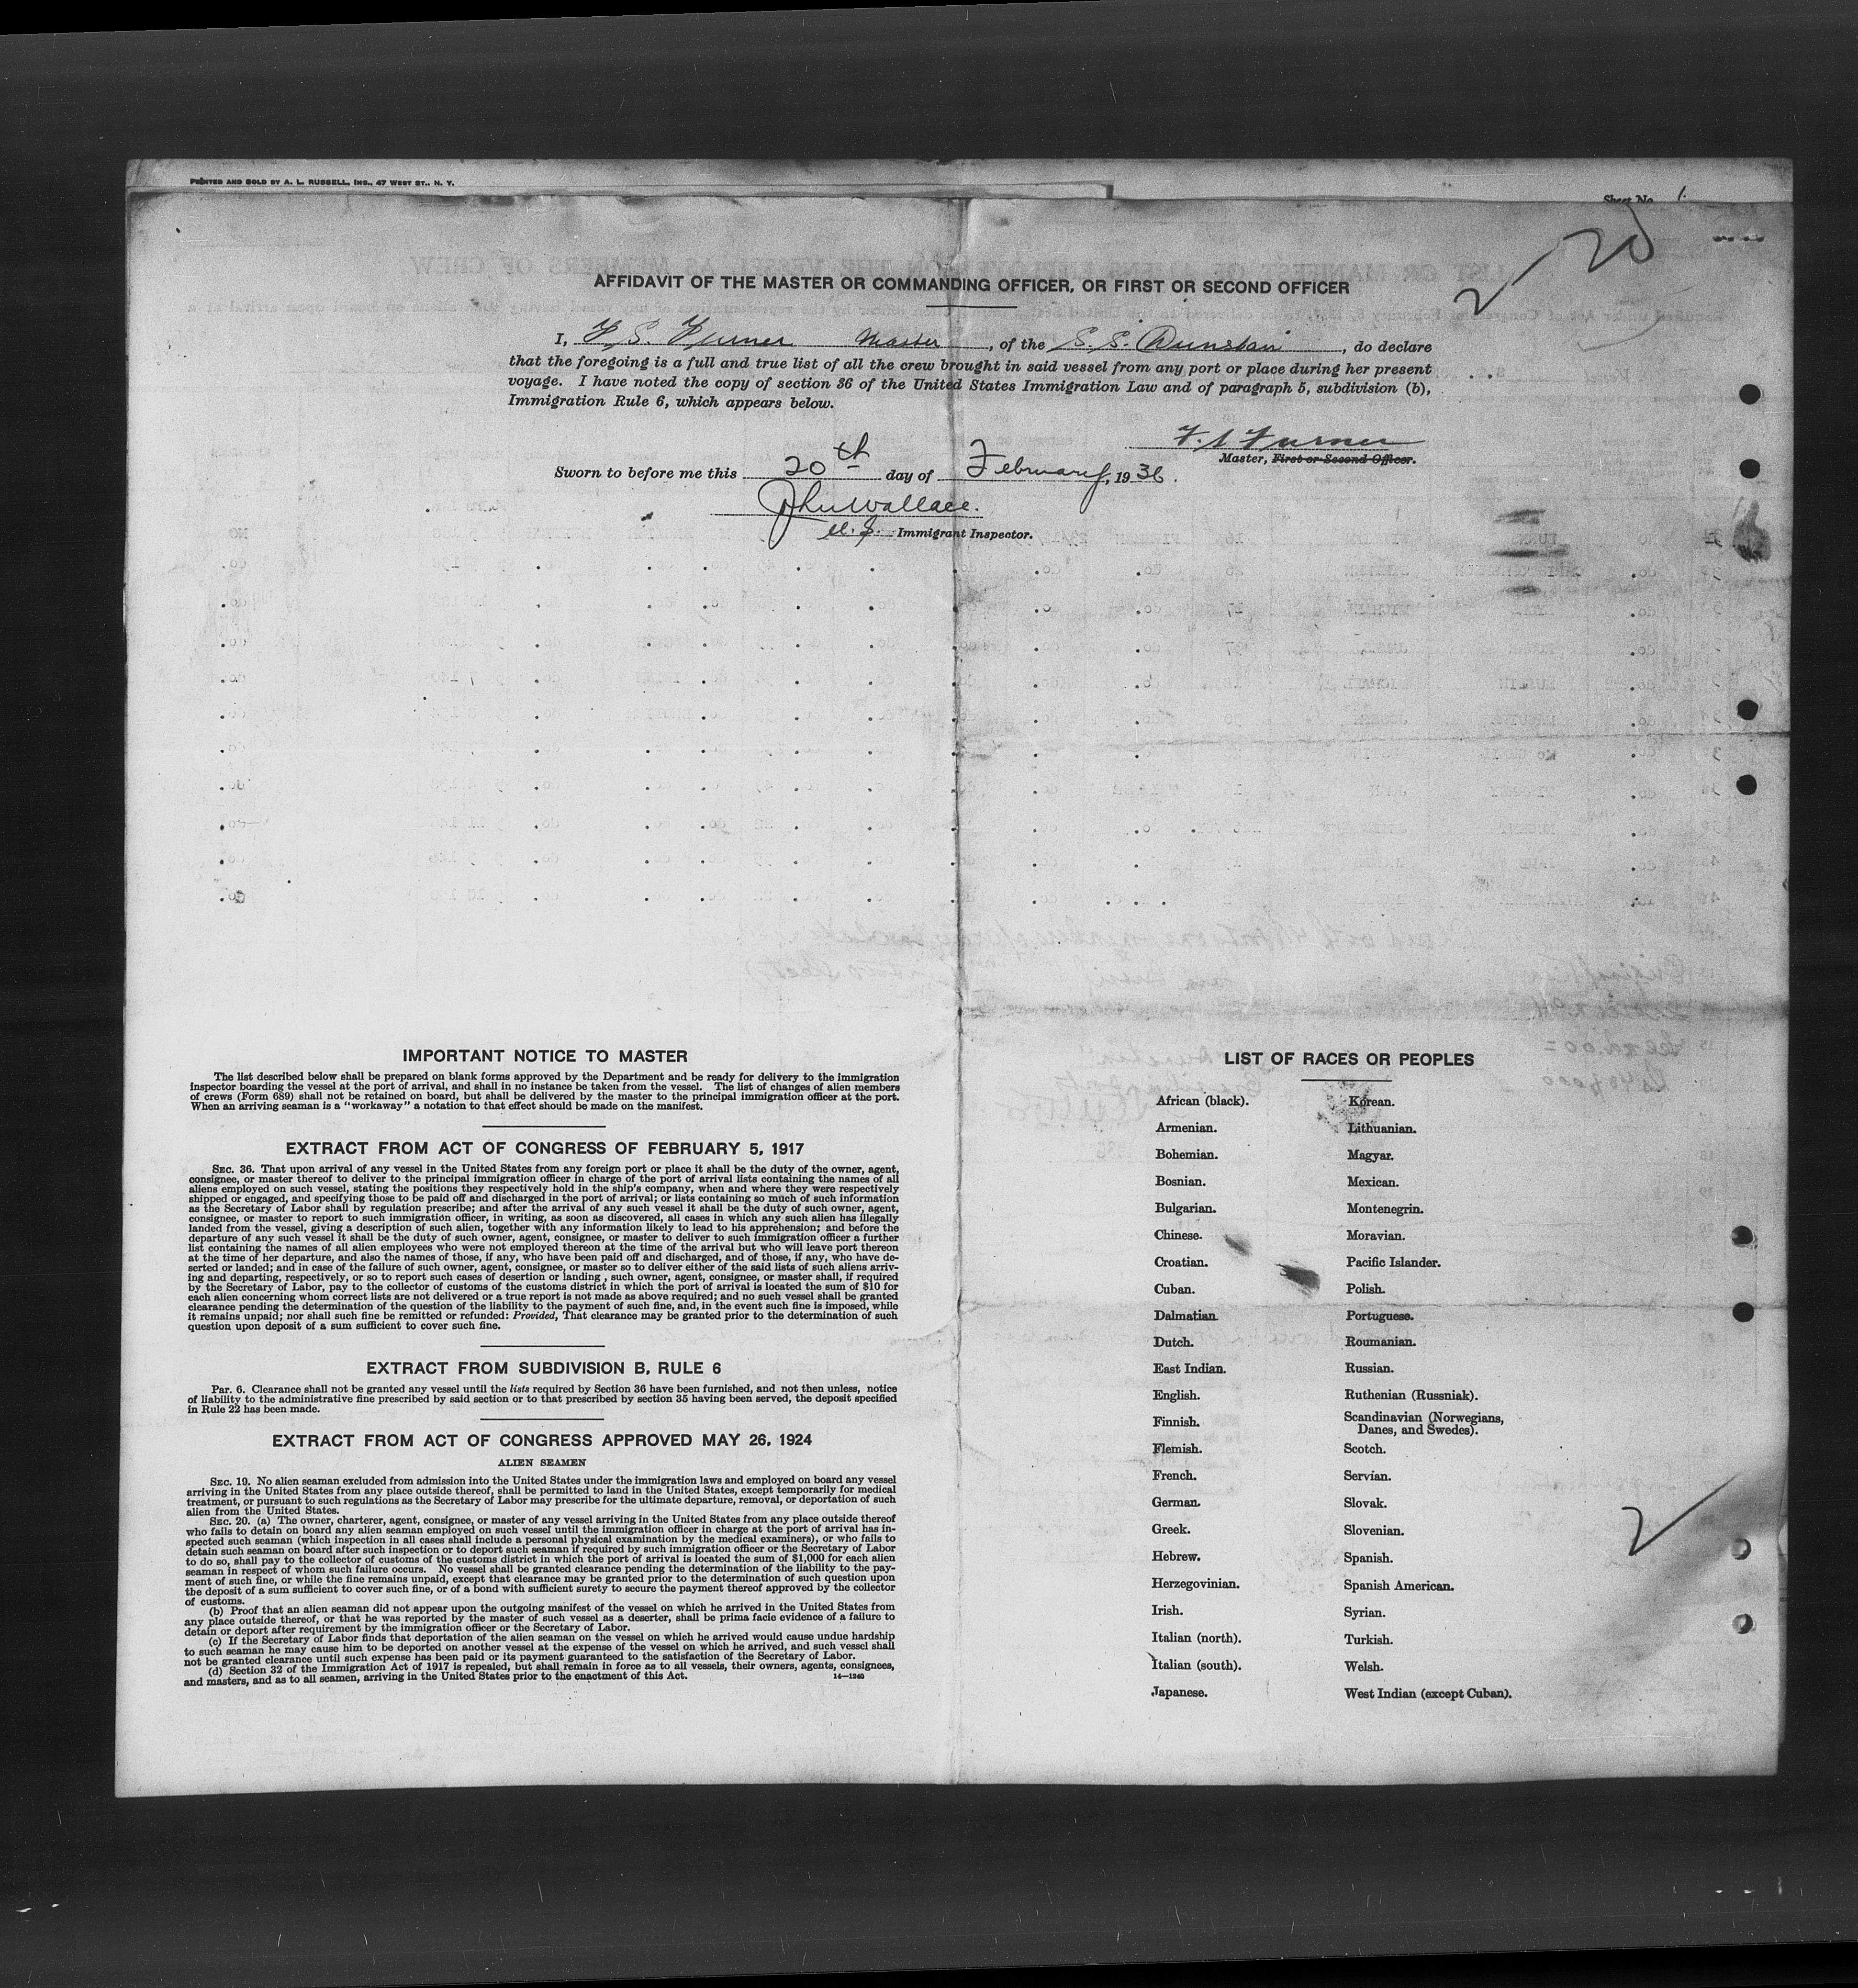 PRINTED AND SOLD BY A. L. RUSSELL, INC., 47 WEST ST., N. Y.
Sheet No. 1.
2-20
AFFIDAVIT OF THE MASTER OR COMMANDING OFFICER, OR FIRST OR SECOND OFFICER
I, F. S. Furner Master, of the S. S. Dunstan, do declare
that the foregoing is a full and true list of all the crew brought in said vessel from any port or place during her present
voyage. I have noted the copy of section 36 of the United States Immigration Law and of paragraph 5, subdivision (b),
Immigration Rule 6, which appears below.
F. S Furner
Master, First or Second Officer.
Sworn to before me this 20th day of February, 1936.
John Wallace.
U. S. Immigrant Inspector.
IMPORTANT NOTICE TO MASTER
The list described below shall be prepared on blank forms approved by the Department and be ready for delivery to the immigration
inspector boarding the vessel at the port of arrival, and shall in no instance be taken from the vessel. The list of changes of alien members
of crews (Form 689) shall not be retained on board, but shall be delivered by the master to the principal immigration officer at the port.
When an arriving seaman is a "workaway" a notation to that effect should be made on the manifest.
EXTRACT FROM ACT OF CONGRESS OF FEBRUARY 5, 1917
SEC. 36. That upon arrival of any vessel in the United States from any foreign port or place it shall be the duty of the owner, agent,
consignee, or master thereof to deliver to the principal immigration officer in charge of the port of arrival lists containing the names of all
aliens employed on such vessel, stating the positions they respectively hold in the ship's company, when and where they were respectively
shipped or engaged, and specifying those to be paid off and discharged in the port of arrival; or lists containing so much of such information
as the Secretary of Labor shall by regulation prescribe; and after the arrival of any such vessel it shall be the duty of such owner, agent,
consignee, or master to report to such immigration officer, in writing, as soon as discovered, all cases in which any such alien has illegally
landed from the vessel, giving a description of such alien, together with any information likely to lead to his apprehension; and before the
departure of any such vessel it shall be the duty of such owner, agent, consignee, or master to deliver to such immigration officer a further
list containing the names of all alien employees who were not employed thereon at the time of the arrival but who will leave port thereon
at the time of her departure, and also the names of those, if any, who have been paid off and discharged, and of those, if any, who have de-
serted or landed; and in case of the failure of such owner, agent, consignee, or master so to deliver either of the said lists of such aliens arriv-
ing and departing, respectively, or so to report such cases of desertion or landing , such owner, agent, consignee, or master shall, if required
by the Secretary of Labor, pay to the collector of customs of the customs district in which the port of arrival is located the sum of $10 for
each alien concerning whom correct lists are not delivered or a true report is not made as above required; and no such vessel shall be granted
clearance pending the determination of the question of the liability to the payment of such fine, and, in the event such fine is imposed, while
it remains unpaid; nor shall such fine be remitted or refunded: Provided, That clearance may be granted prior to the determination of such
question upon deposit of a sum sufficient to cover such fine.
EXTRACT FROM SUBDIVISION B, RULE 6
Par. 6. Clearance shall not be granted any vessel until the lists required by Section 36 have been furnished, and not then unless, notice
of liability to the administrative fine prescribed by said section or to that prescribed by section 35 having been served, the deposit specified
in Rule 22 has been made.
EXTRACT FROM ACT OF CONGRESS APPROVED MAY 26, 1924
ALIEN SEAMEN
SEC. 19. No alien seaman excluded from admission into the United States under the immigration laws and employed on board any vessel
arriving in the United States from any place outside thereof, shall be permitted to land in the United States, except temporarily for medical
treatment, or pursuant to such regulations as the Secretary of Labor may prescribe for the ultimate departure, removal, or deportation of such
alien from the United States.
SEC. 20. (a) The owner, charterer, agent, consignee, or master of any vessel arriving in the United States from any place outside thereof
who fails to detain on board any alien seaman employed on such vessel until the immigration officer in charge at the port of arrival has in-
spected such seaman (which inspection in all cases shall include a personal physical examination by the medical examiners), or who fails to
detain such seaman on board after such inspection or to deport such seaman if required by such immigration officer or the Secretary of Labor
to do so, shall pay to the collector of customs of the customs district in which the port of arrival is located the sum of $1,000 for each alien
seaman in respect of whom such failure occurs. No vessel shall be granted clearance pending the determination of the liability to the pay-
ment of such fine, or while the fine remains unpaid, except that clearance may be granted prior to the determination of such question upon
the deposit of a sum sufficient to cover such fine, or of a bond with sufficient surety to secure the payment thereof approved by the collector
of customs.
(b) Proof that an alien seaman did not appear upon the outgoing manifest of the vessel on which he arrived in the United States from
any place outside thereof, or that he was reported by the master of such vessel as a deserter, shall be prima facie evidence of a failure to
detain or deport after requirement by the immigration officer or the Secretary of Labor.
(c) If the Secretary of Labor finds that deportation of the alien seaman on the vessel on which he arrived would cause undue hardship
to such seaman he may cause him to be deported on another vessel at the expense of the vessel on which he arrived, and such vessel shall
not be granted clearance until such expense has been paid or its payment guaranteed to the satisfaction of the Secretary of Labor.
(d) Section 32 of the Immigration Act of 1917 is repealed, but shall remain in force as to all vessels, their owners, agents, consignees,
and masters, and as to all seamen, arriving in the United States prior to the enactment of this Act.
14—1240
LIST OF RACES OR PEOPLES
African (black).
Armenian.
Bohemian.
Bosnian.
Bulgarian.
Chinese.
Croatian.
Cuban.
Dalmatian.
Dutch.
East Indian.
English.
Finnish.
Flemish.
French.
German.
Greek.
Hebrew.
Herzegovinian.
Irish.
Italian (north).
Italian (south).
Japanese.
Korean.
Lithuanian.
Magyar.
Mexican.
Montenegrin.
Moravian.
Pacific Islander.
Polish.
Portuguese.
Roumanian.
Russian.
Ruthenian (Russniak).
Scandinavian (Norwegians,
Danes, and Swedes).
Scotch.
Servian.
Slovak.
Slovenian.
Spanish.
Spanish American.
Syrian.
Turkish.
Welsh.
West Indian (except Cuban).
2